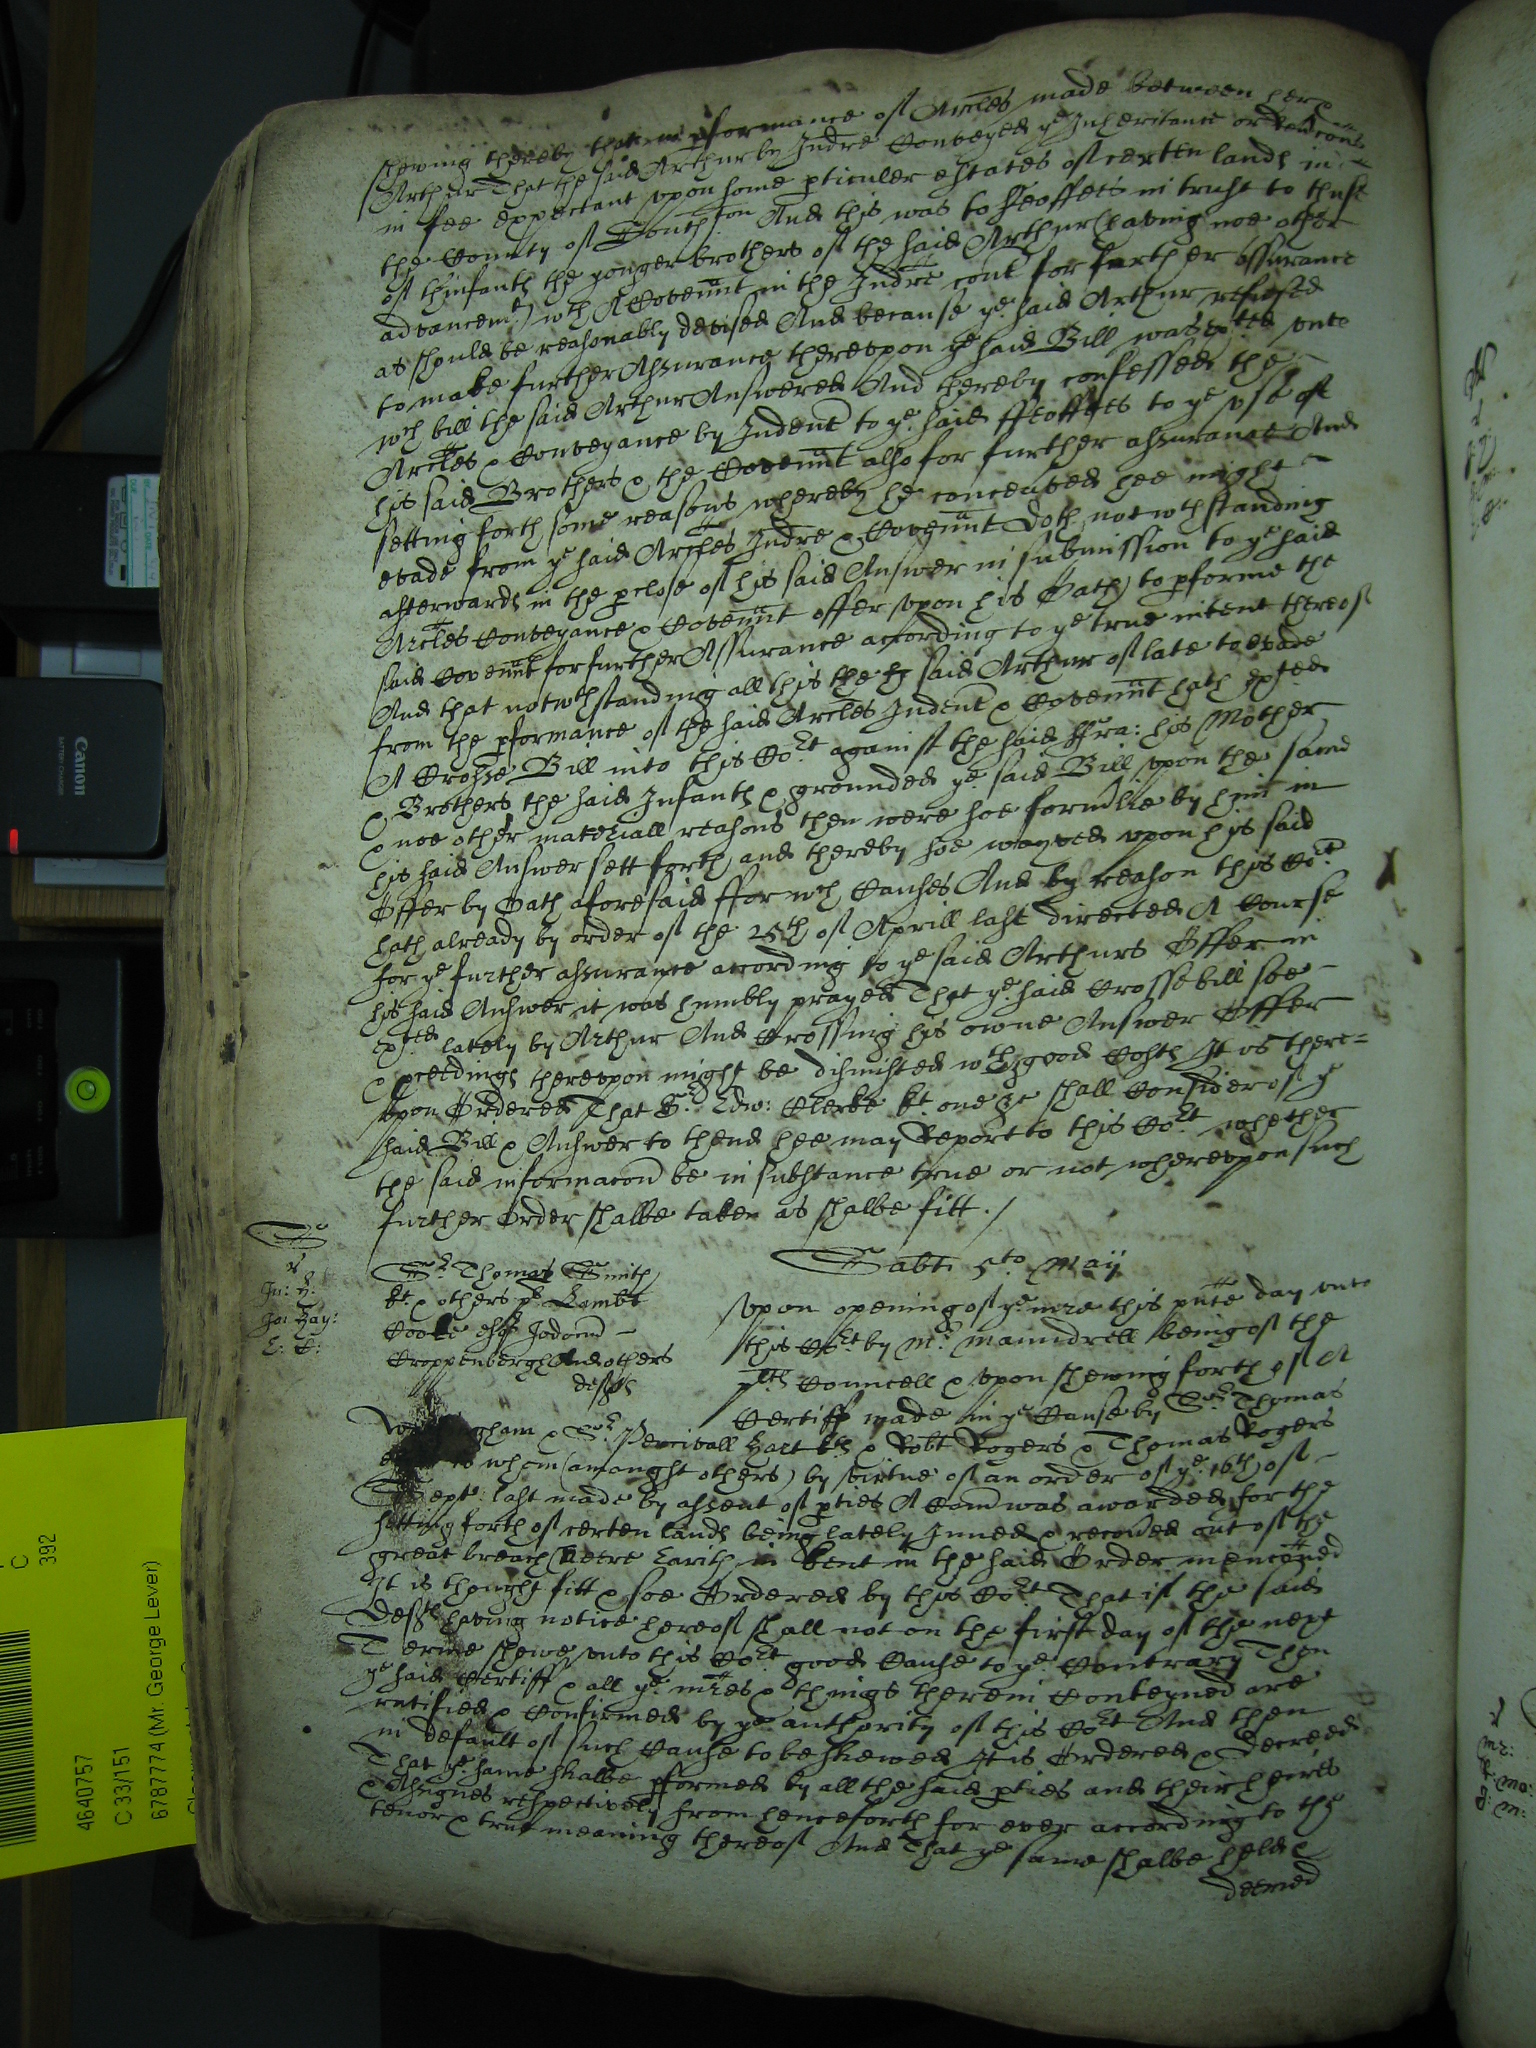 shewing thereby that in pformance of Arcles made between her &
Arthur That the said Arthur by Indre Conveyed ye Inheritance or Revcons
in fee expectant vpon some pticuler estates of certen lands in
the County of South:ton And this was to ffeoffees in trust to thuse
of thinfants the yonger brothers of the said Arthur (having noe other
advancemt) wth A Covennt in the Indre cont for further assurance
as should be reasonably devised And because ye said Arthur refused
to make further Assurance therevpon ye said Bill was exted vnto
wch bill the said Arthur Answered And thereby confessed the
Arcles & Conveyance by Indent to ye said ffeoffees to ye vse of
his said Brothers & the Covennt also for further assurance And
setting forth some reasons whereby he conceaved hee might
evade from ye said Arcles Indre & Covennt Doth notwthstanding
afterwards in the pclose of his said Answer in submission to ye said
Arcles Conveyance & Covennt offer vpon his Oath to pforme the
said Covennt for further Assurance according to ye true intent thereof
And that notwthstanding all this the said Arthur of late to evade
from the pformance of the said Arcles Indent & Covennt hath exted
A Crosse Bill into this Cort against the said ffra: his Mother
& Brothers the said Infants & grounded ye said Bill vpon the same
& noe other materiall reasons then were soe formlie by him in
his said Answer sett forth and thereby soe wayved vpon his said
Offer by Oath aforesaid ffor wch Causes And by reason this Cort
hath already by order of the 25th of Aprill last directed A Course
for ye further assurance according to ye said Arthurs Offer in
his said Answer it was humbly prayed That ye said Crosse bill soe
exted lately by Arthur And Crossing his owne Answer Offer
& pceedings therevpon might be dismissed wth good Costs It is there=
vpon Ordered That Sr Edw: Clerke kt one &c shall Consider of ye
said Bill & Answer to thend hee may Report to this Cort whether
the said informacon be in substance true or not wherevpon such
further Order shalbe taken as shalbe fitt ./
Sabti 5to Maij
Jo: Hay:
Sr Thomas Smith
kt & others pl Lambt
Cooke esqr Jodocum
Croppenbergh And others
defts
Vpon opening of ye mre this pnte day vnto
this Cort by Mr Maundrell being of the
plts Councell & vpon shewing forth of A
Certiff made in ye Cause by Sr Thomas
gham & Sr Percivall Hart kts & Robt Rogers & Thomas Rogers
to whom (amongst others) by virtue of an order of ye 16th of
Sept: last made by assent of pties A Com was awarded for the
setting forth of certen lands being lately Inned & recoved out of the
great breach neere Earith in Kent in the said Order menconed
It is thought fitt & soe Ordered by this Cort That if the said
Defts having notice hereof shall not on the first day of the next
Terme shewe vnto this Cort good Cause to ye Contrary Then
ye said Certiff & all ye mres & things therein Conteyned are
ratified & Confirmed by ye authority of this Cort And then
in default of such Cause to be shewed It is Ordered & Decreed
That ye same shalbe pformed by all the said pties and their heires
& Assignes respectively from henceforth for ever according to the
tenor & true meaning thereof And That ye same shalbe held &
deemed
Canon
BATTERY CHARGER
C
392
4640757
C 33/151
6787774 (Mr. George Lever)